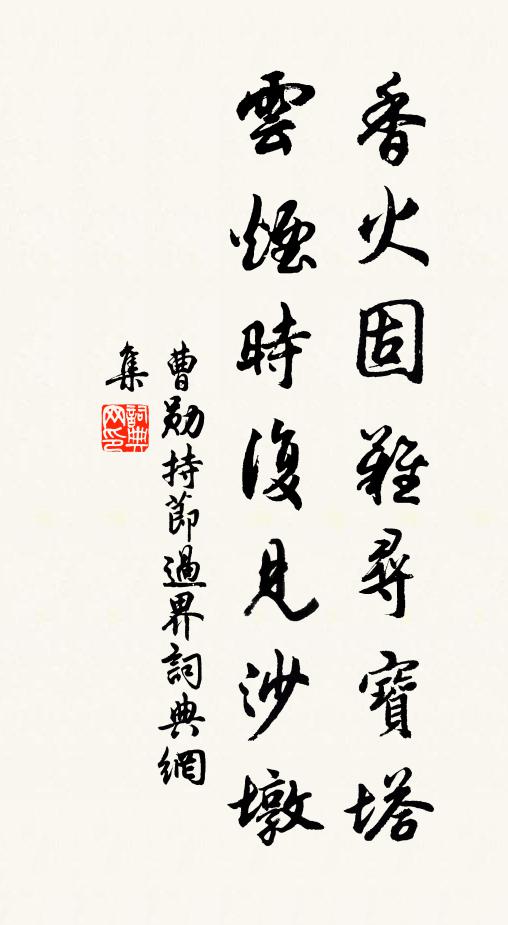 香火固難尋寶塔
雲煙時復見沙墩
曹勛持節過界詞典網
集
詞典
网印